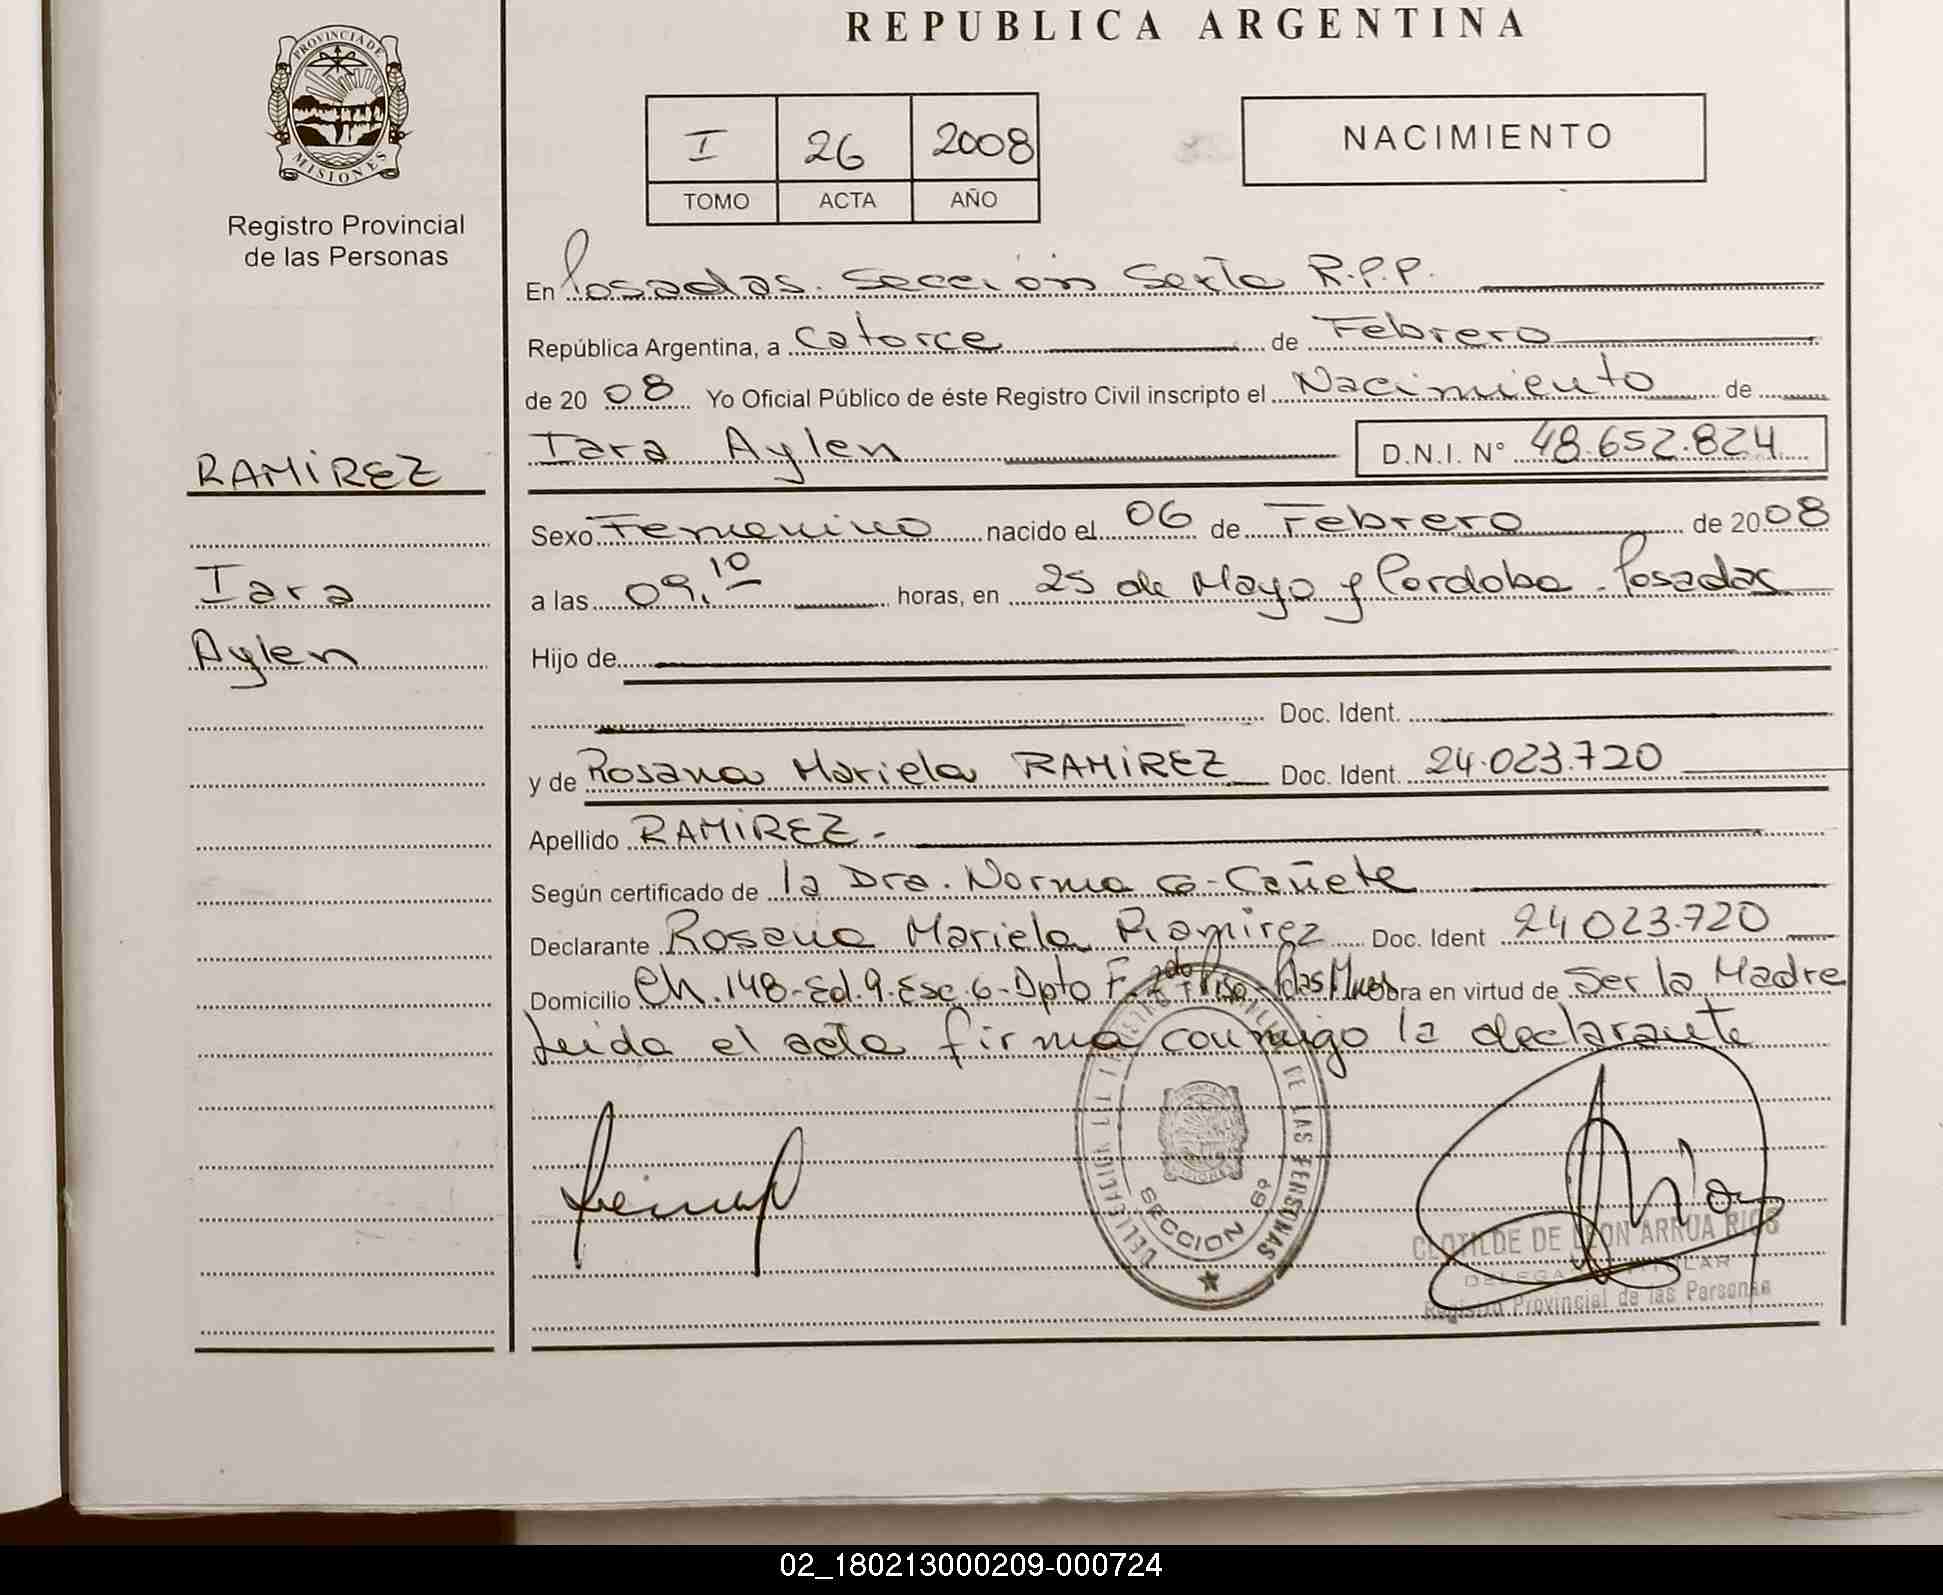 REPUBLICA ARGENTINA
PROVINCIA DE
MISIONES
Registro Provincial
de las Personas
I 26 2008
TOMO ACTA AÑO
NACIMIENTO
En Posadas. Sección Sexta R.P.P.
República Argentina, a Catorce de Febrero
de 2008 Yo Oficial Público de éste Registro Civil inscripto el Nacimiento de
Iara Aylen D.N.I. N° 48.652.824
RAMIREZ
Iara
Aylen
Sexo Femenino nacido el 06 de Febrero de 2008
a las 09,10 horas, en 25 de Mayo y Cordoba - Posadas
Hijo de
Doc. Ident.
y de Rosana Mariela RAMIREZ Doc. Ident. 24.023.720
Apellido RAMIREZ -
Según certificado de la Dra. Norma G. Cañete
Declarante Rosana Mariela Ramirez Doc. Ident 24 023.720
Domicilio Ch. 148-Ed.9-Esc.6-Dpto F. 2do Piso - Pdas Mnes Obra en virtud de Ser la Madre
Leida el acta firma conmigo la declarante
DELEGACION DEL REGISTRO PROVINCIAL DE LAS PERSONAS
SECCION 6ª
CLOTILDE DE LEON ARRUA RIOS
DELEGADA TITULAR
Registro Provincial de las Personas
02_180213000209-000724